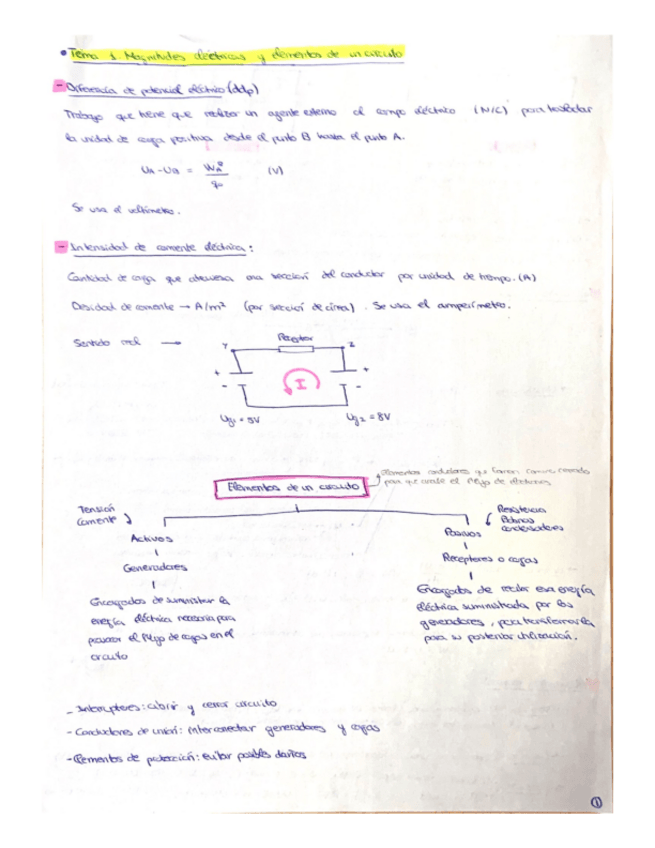 • Tema 1. Magnitudes eléctricas y elementos de un circuito
- Diferencia de potencial eléctrico (ddp)
Trabajo que tiene que realizar un agente externo al campo eléctrico (N/C) para trasladar
la unidad de carga positiva desde el punto B hasta el punto A.
UA - UB = WAB / q0 (V)
Se usa el voltímetro.
- Intensidad de corriente eléctrica:
Cantidad de carga que atraviesa una sección del conductor por unidad de tiempo. (A)
Densidad de corriente → A/m² (por sección de área). Se usa el amperímetro.
Sentido real →
Receptor
Y
2
+
-
I
+
-
Ug1 = 5V
Ug2 = 8V
Elementos de un circuito
Elementos conductores que forman camino cerrado
para que circule el flujo de electrones
Tensión
Corriente
Activos
Generadores
Encargados de suministrar la
energía eléctrica necesaria para
provocar el flujo de cargas en el
circuito
Resistencia
Bobinas
condensadores
Pasivos
Receptores o cargas
Encargados de recibir esa energía
eléctrica suministrada por los
generadores, para transformarla
para su posterior utilización.
- Interruptores: abrir y cerrar circuito
- Conductores de unión: interconectar generadores y cargas
- Elementos de protección: evitar posibles daños
1